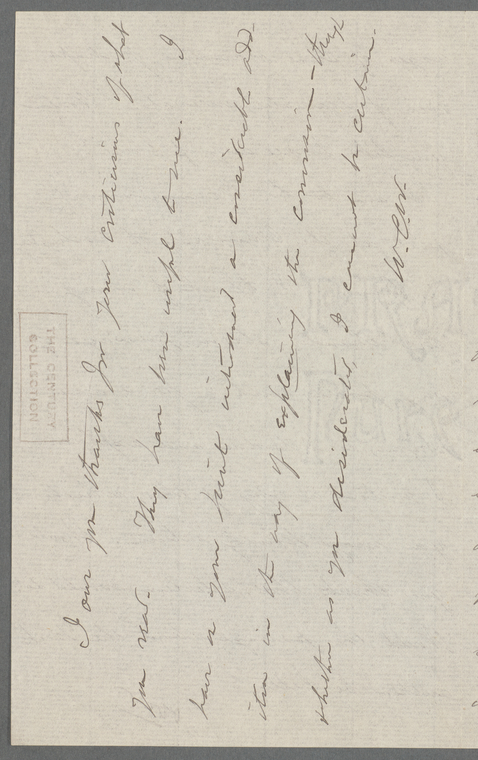 I owe you thanks for your criticisms of what
you read. They have been useful to me. I
have as your hint introduced a considerable add-
ition in the way of explaining the conversion – though
whether as you desiderated, I cannot be certain.
W.C.W.
THE CENTURY
COLLECTION